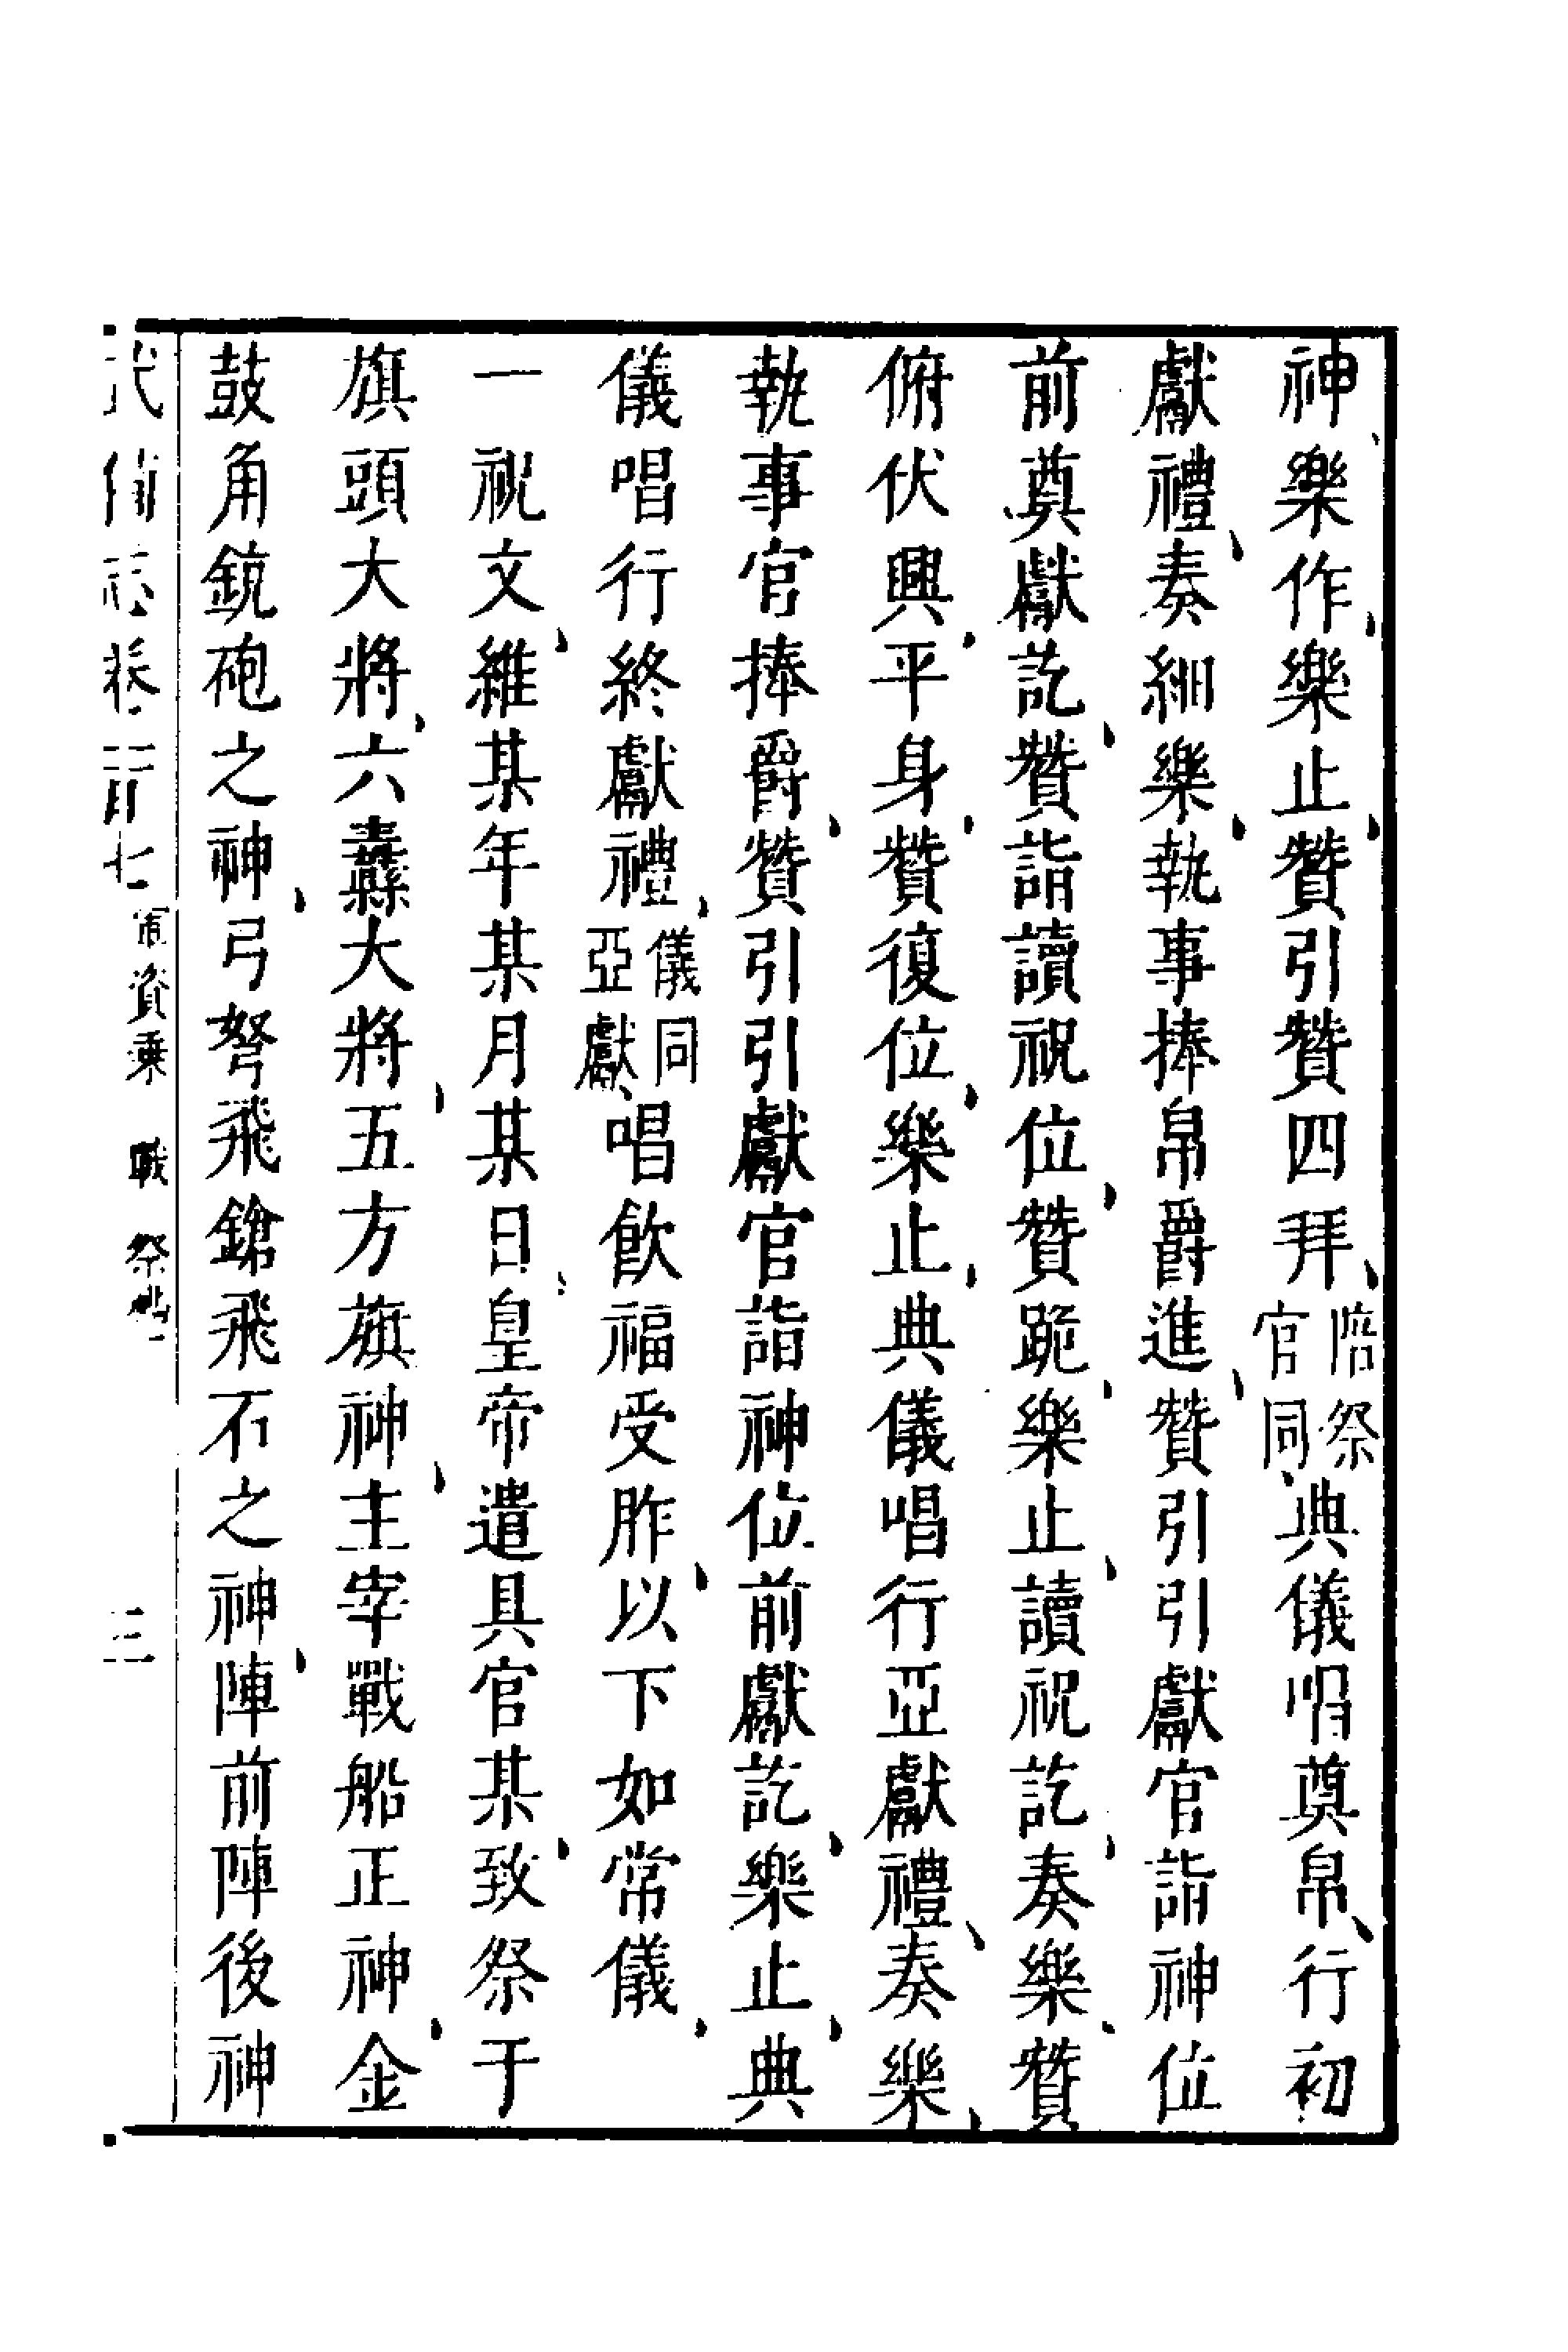 神樂作、樂止、贊引贊四拜、陪祭官同、典儀唱奠帛、行初
獻禮、奏細樂、執事捧帛爵進、贊引引獻官詣神位
前奠獻訖、贊詣讀祝位、贊跪、樂止、讀祝訖、奏樂、贊
俯伏興、平身、贊復位、樂止、典儀唱行亞獻禮、奏樂、
執事官捧爵、贊引引獻官詣神位前獻訖、樂止、典
儀唱行終獻禮、儀同亞獻、唱飲福受胙、以下如常儀、
一祝文、維某年某月某日、皇帝遣具官某、致祭于
旗頭大將、六纛大將、五方旗神、主宰戰船正神、金
鼓角銃砲之神、弓弩飛鎗飛石之神、陣前陣後神
武備志卷一百七 軍資乘 戰 祭 三